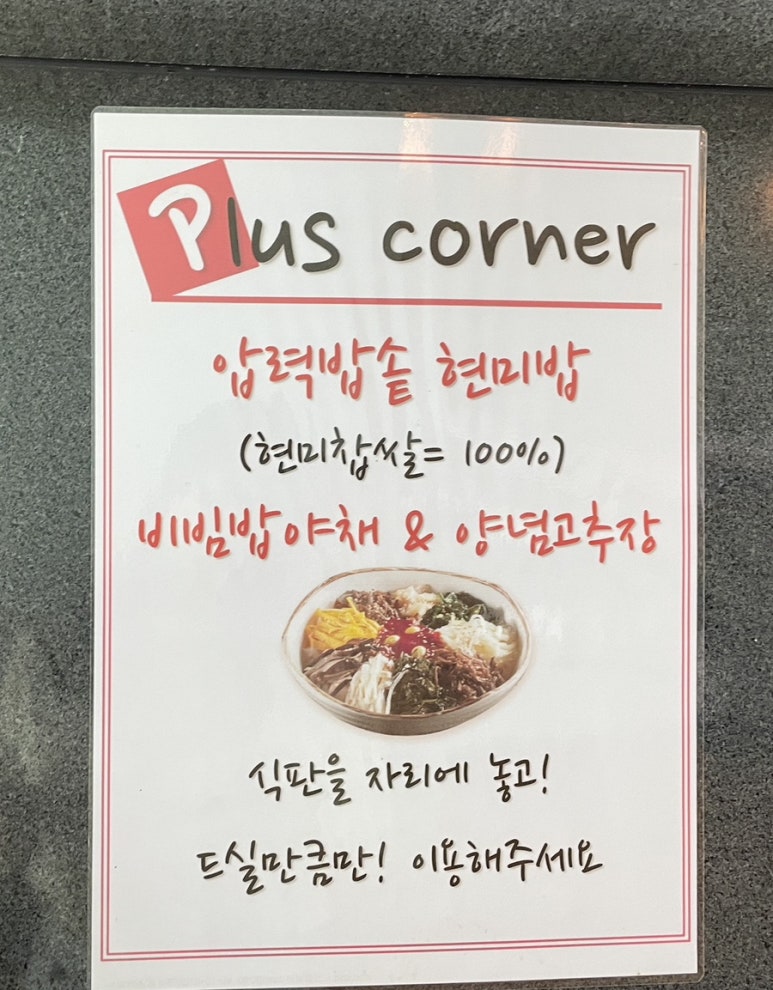 Plus corner
압력밥솥 현미밥
(현미찹쌀= 100%)
비빔밥야채 & 양념고추장
식판을 자리에 놓고!
드실만큼만! 이용해주세요